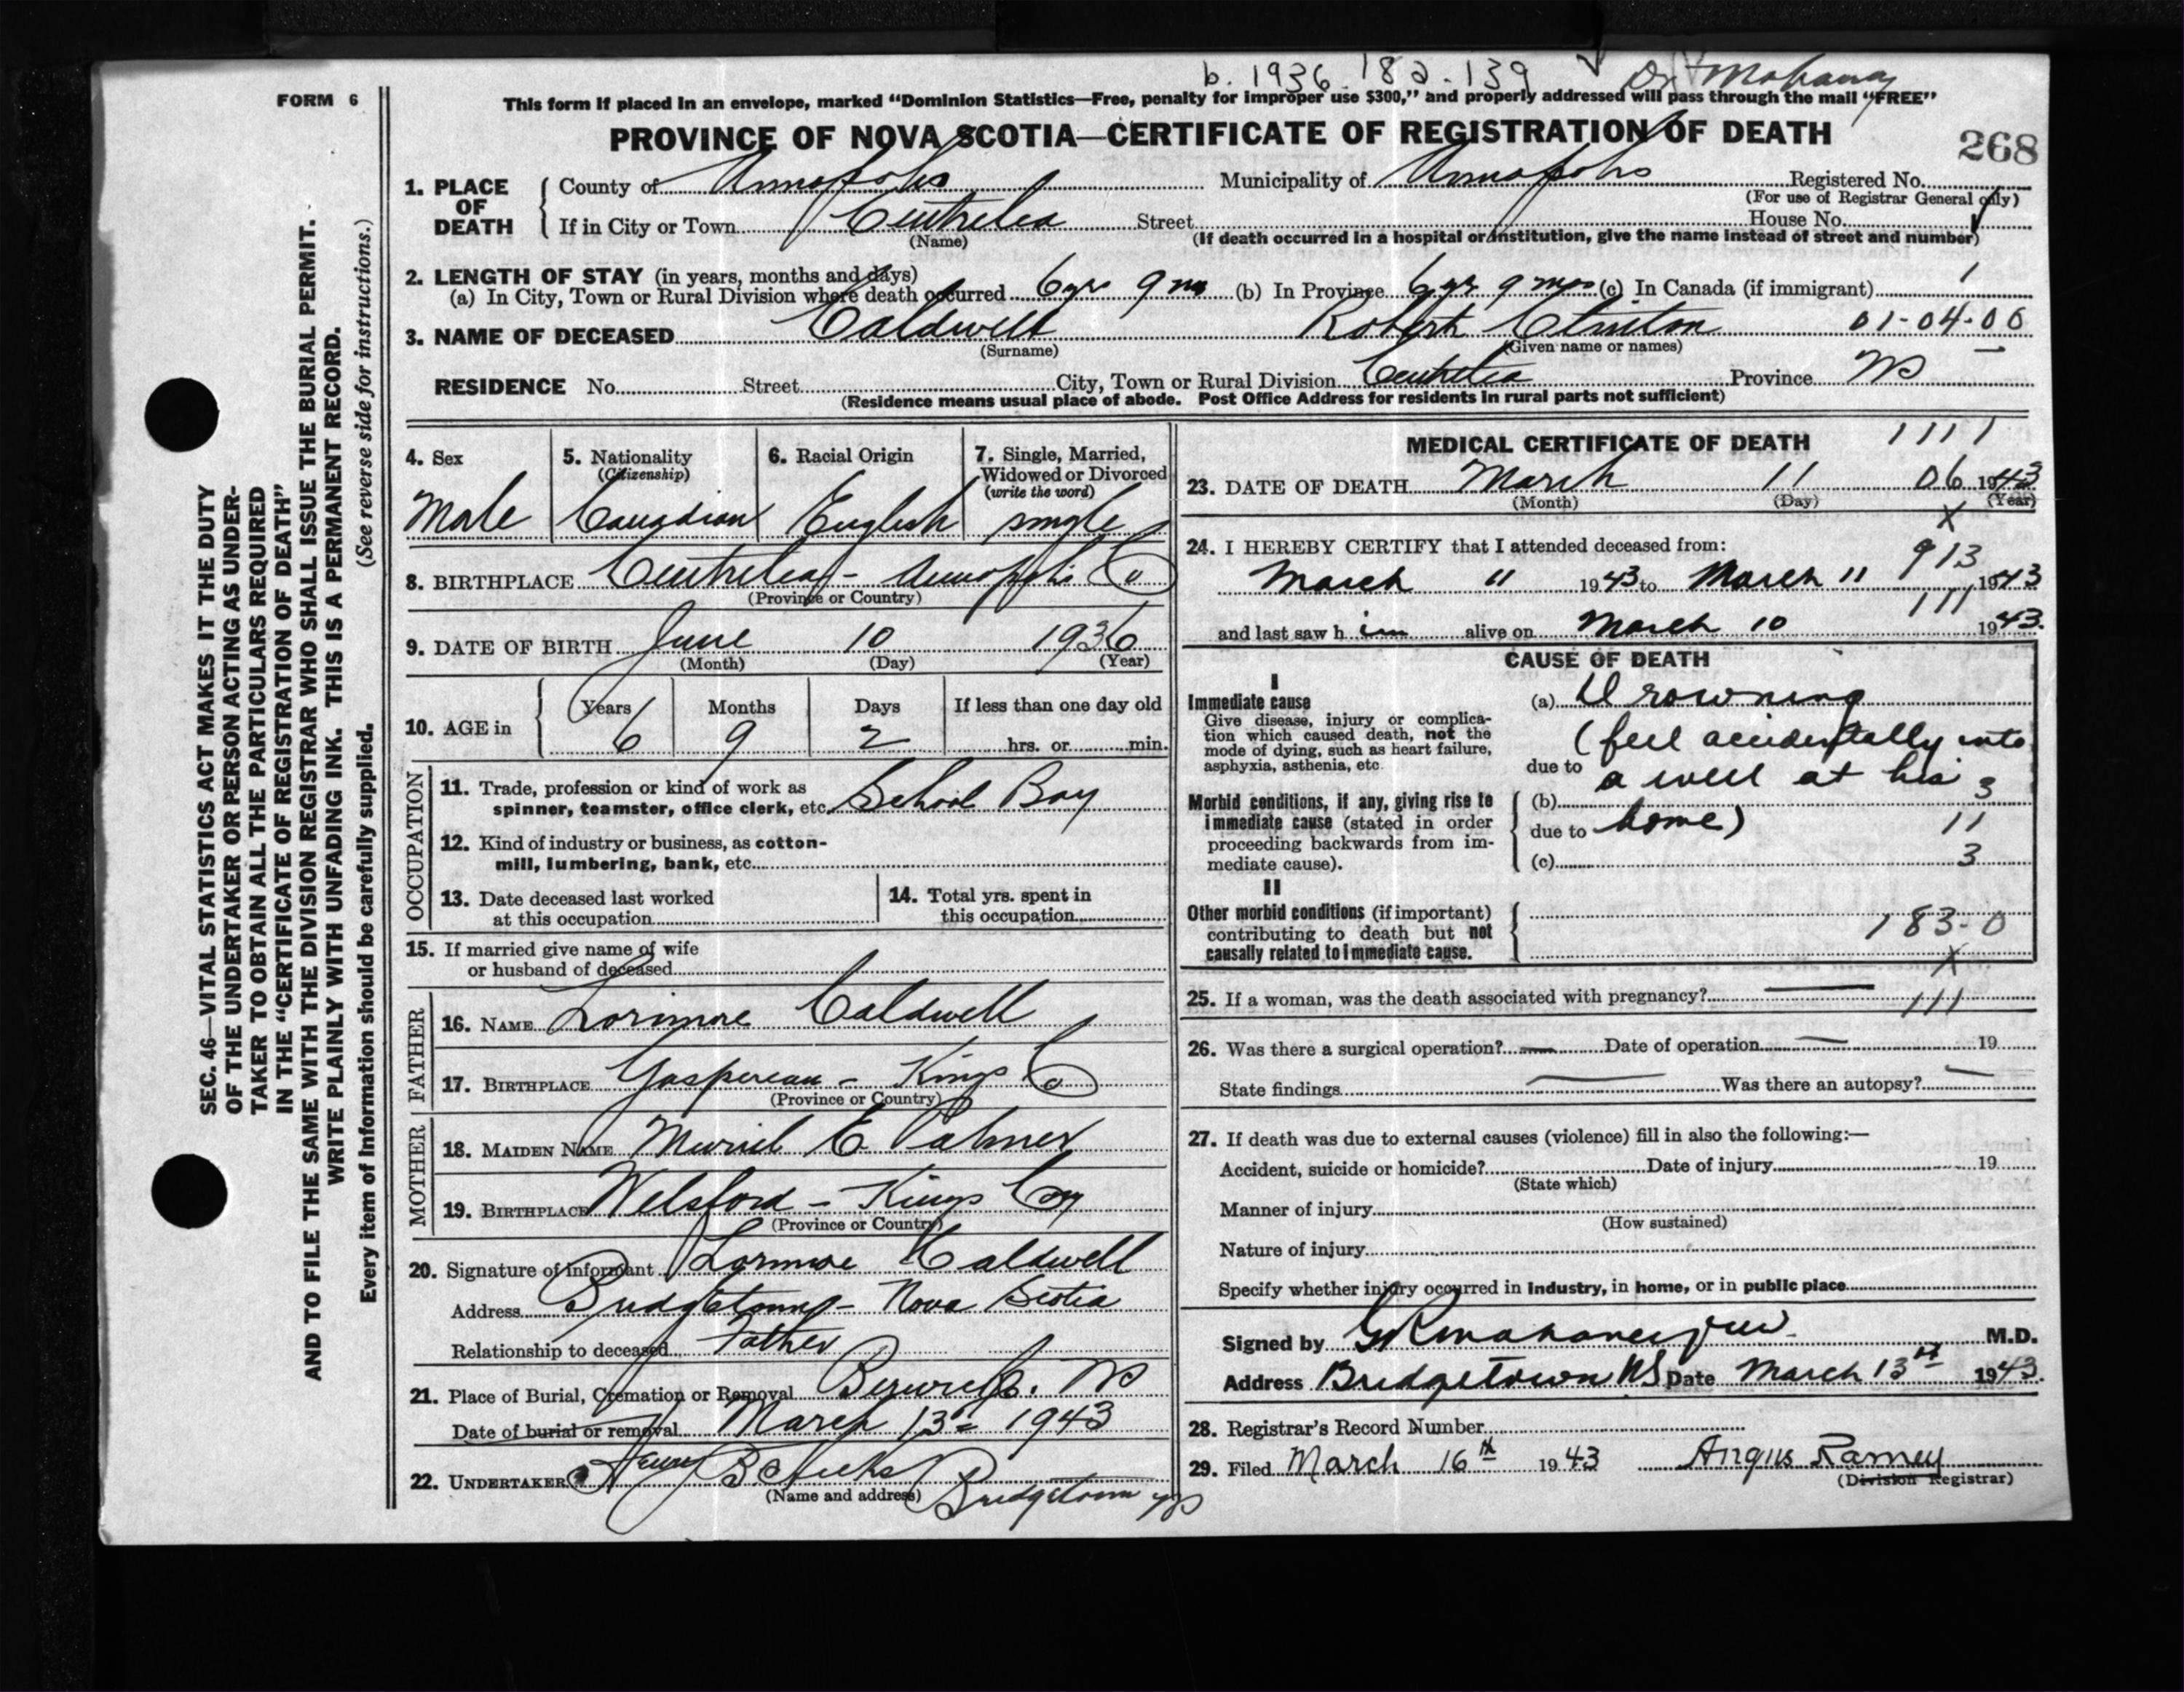 b. 1936. 182. 139 Dr Mahaney
FORM 6
This form if placed in an envelope, marked “Dominion Statistics—Free, penalty for improper use $300,” and properly addressed will pass through the mail “FREE”
PROVINCE OF NOVA SCOTIA—CERTIFICATE OF REGISTRATION OF DEATH
268
1. PLACE OF DEATH
County of Annapolis Municipality of Annapolis Registered No.
(For use of Registrar General only)
If in City or Town Centrelea Street House No.
(Name) (If death occurred in a hospital or institution, give the name instead of street and number)
2. LENGTH OF STAY (in years, months and days) 1
(a) In City, Town or Rural Division where death occurred 6 yrs 9 ms (b) In Province 6 yrs 9 mos (c) In Canada (if immigrant)
3. NAME OF DECEASED Caldwell Robert Clinton 01-04-06
(Surname) (Given name or names)
RESIDENCE No. Street City, Town or Rural Division Centrelea Province NS
(Residence means usual place of abode. Post Office Address for residents in rural parts not sufficient)
4. Sex 5. Nationality 6. Racial Origin 7. Single, Married,
(Citizenship) Widowed or Divorced
(write the word)
Male Canadian English single
8. BIRTHPLACE Centrelea - Annapolis Co
(Province or Country)
9. DATE OF BIRTH June 10 1936
(Month) (Day) (Year)
10. AGE in Years Months Days If less than one day old
6 9 2 hrs. or min.
OCCUPATION
11. Trade, profession or kind of work as
spinner, teamster, office clerk, etc. School Boy
12. Kind of industry or business, as cotton-
mill, lumbering, bank, etc.
13. Date deceased last worked
at this occupation
14. Total yrs. spent in
this occupation
15. If married give name of wife
or husband of deceased
FATHER
16. NAME Lorimore Caldwell
17. BIRTHPLACE Gaspereau - Kings Co
(Province or Country)
MOTHER
18. MAIDEN NAME Muriel E Palmer
19. BIRTHPLACE Welsford - Kings Coy
(Province or Country)
20. Signature of informant Lorimore Caldwell
Address Bridgetown - Nova Scotia
Relationship to deceased Father
21. Place of Burial, Cremation or Removal Berwick. NS
Date of burial or removal March 13th 1943
22. UNDERTAKER B Hicks
(Name and address) Bridgetown NS
MEDICAL CERTIFICATE OF DEATH 1111
23. DATE OF DEATH March 11 06 1943
(Month) (Day) (Year)
X
24. I HEREBY CERTIFY that I attended deceased from:
913
March 11 1943 to March 11 1943
111
and last saw him alive on March 10 1943.
CAUSE OF DEATH
I
Immediate cause
Give disease, injury or complica-
tion which caused death, not the
mode of dying, such as heart failure,
asphyxia, asthenia, etc.
(a) Drowning
(fell accidentally into
due to a well at his 3
Morbid conditions, if any, giving rise to
immediate cause (stated in order
proceeding backwards from im-
mediate cause).
(b)
due to home) 11
(c) 3
II
Other morbid conditions (if important)
contributing to death but not
causally related to immediate cause.
183-0
X
25. If a woman, was the death associated with pregnancy?
111
26. Was there a surgical operation? Date of operation 19
State findings Was there an autopsy?
27. If death was due to external causes (violence) fill in also the following:—
Accident, suicide or homicide? Date of injury 19
(State which)
Manner of injury
(How sustained)
Nature of injury
Specify whether injury occurred in industry, in home, or in public place
Signed by M.D.
Address Bridgetown NS Date March 13th 1943.
28. Registrar's Record Number
29. Filed March 16th 1943 Angus Ramey
(Division Registrar)
SEC. 46—VITAL STATISTICS ACT MAKES IT THE DUTY
OF THE UNDERTAKER OR PERSON ACTING AS UNDER-
TAKER TO OBTAIN ALL THE PARTICULARS REQUIRED
IN THE “CERTIFICATE OF REGISTRATION OF DEATH”
AND TO FILE THE SAME WITH THE DIVISION REGISTRAR WHO SHALL ISSUE THE BURIAL PERMIT.
WRITE PLAINLY WITH UNFADING INK. THIS IS A PERMANENT RECORD.
(See reverse side for instructions.)
Every item of information should be carefully supplied.